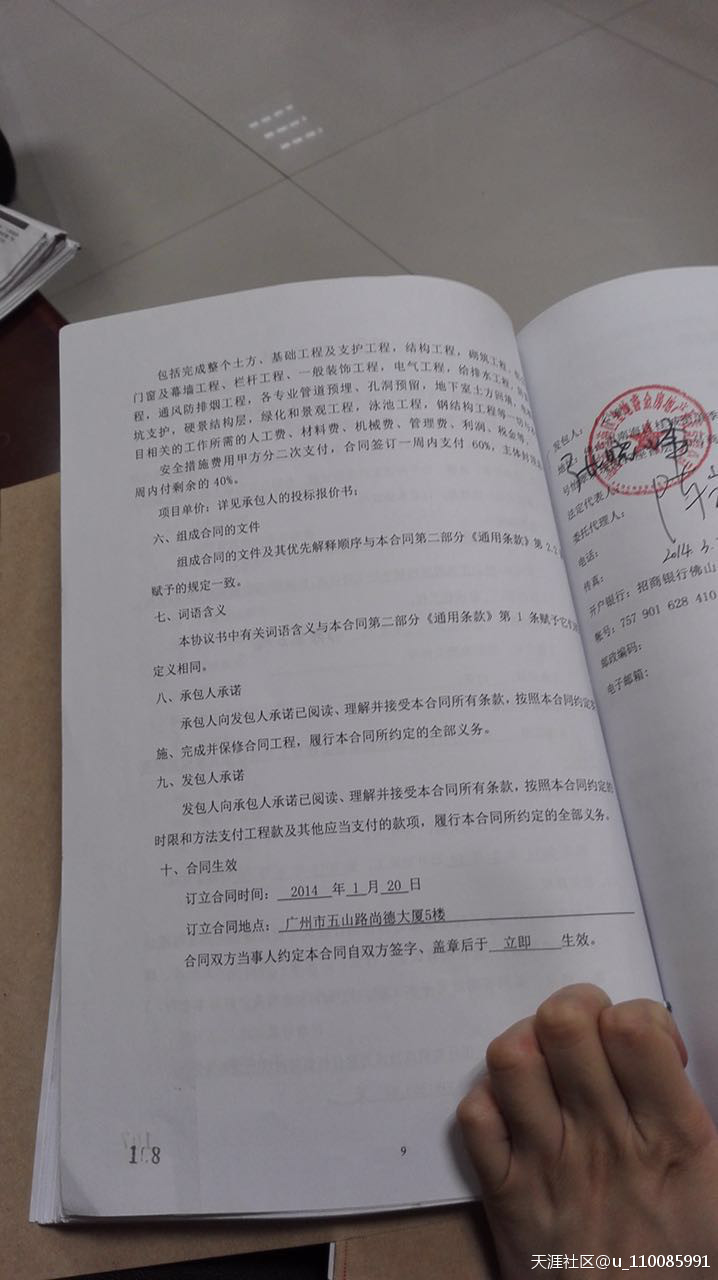 包括完成整个土方、基础工程及支护工程，结构工程，砌筑工程，
门窗及幕墙工程、栏杆工程、一般装饰工程，电气工程，给排水工程，
程，通风防排烟工程，各专业管道预埋、孔洞预留，地下室土方回填，
坑支护，硬景结构层，绿化和景观工程，泳池工程，钢结构工程等一切
目相关的工作所需的人工费、材料费、机械费、管理费、利润、税金等。
安全措施费用甲方分二次支付，合同签订一周内支付 60%，主体封顶
周内付剩余的 40%。
项目单价：详见承包人的投标报价书；
六、组成合同的文件
组成合同的文件及其优先解释顺序与本合同第二部分《通用条款》第 2.2
赋予的规定一致。
七、词语含义
本协议书中有关词语含义与本合同第二部分《通用条款》第 1 条赋予它们的
定义相同。
八、承包人承诺
承包人向发包人承诺已阅读、理解并接受本合同所有条款，按照本合同约定
施、完成并保修合同工程，履行本合同所约定的全部义务。
九、发包人承诺
发包人向承包人承诺已阅读、理解并接受本合同所有条款，按照本合同约定的
时限和方法支付工程款及其他应当支付的款项，履行本合同所约定的全部义务。
十、合同生效
订立合同时间： 2014 年 1 月 20 日
订立合同地点： 广州市五山路尚德大厦5楼
合同双方当事人约定本合同自双方签字、盖章后于 立即 生效。
9
发包人：
地址：
法定代表人：
委托代理人：
电话：
2014. 3.
传真：
开户银行：招商银行佛山
帐号：757 901 628 410
邮政编码：
电子邮箱：
天涯社区@u_110085991